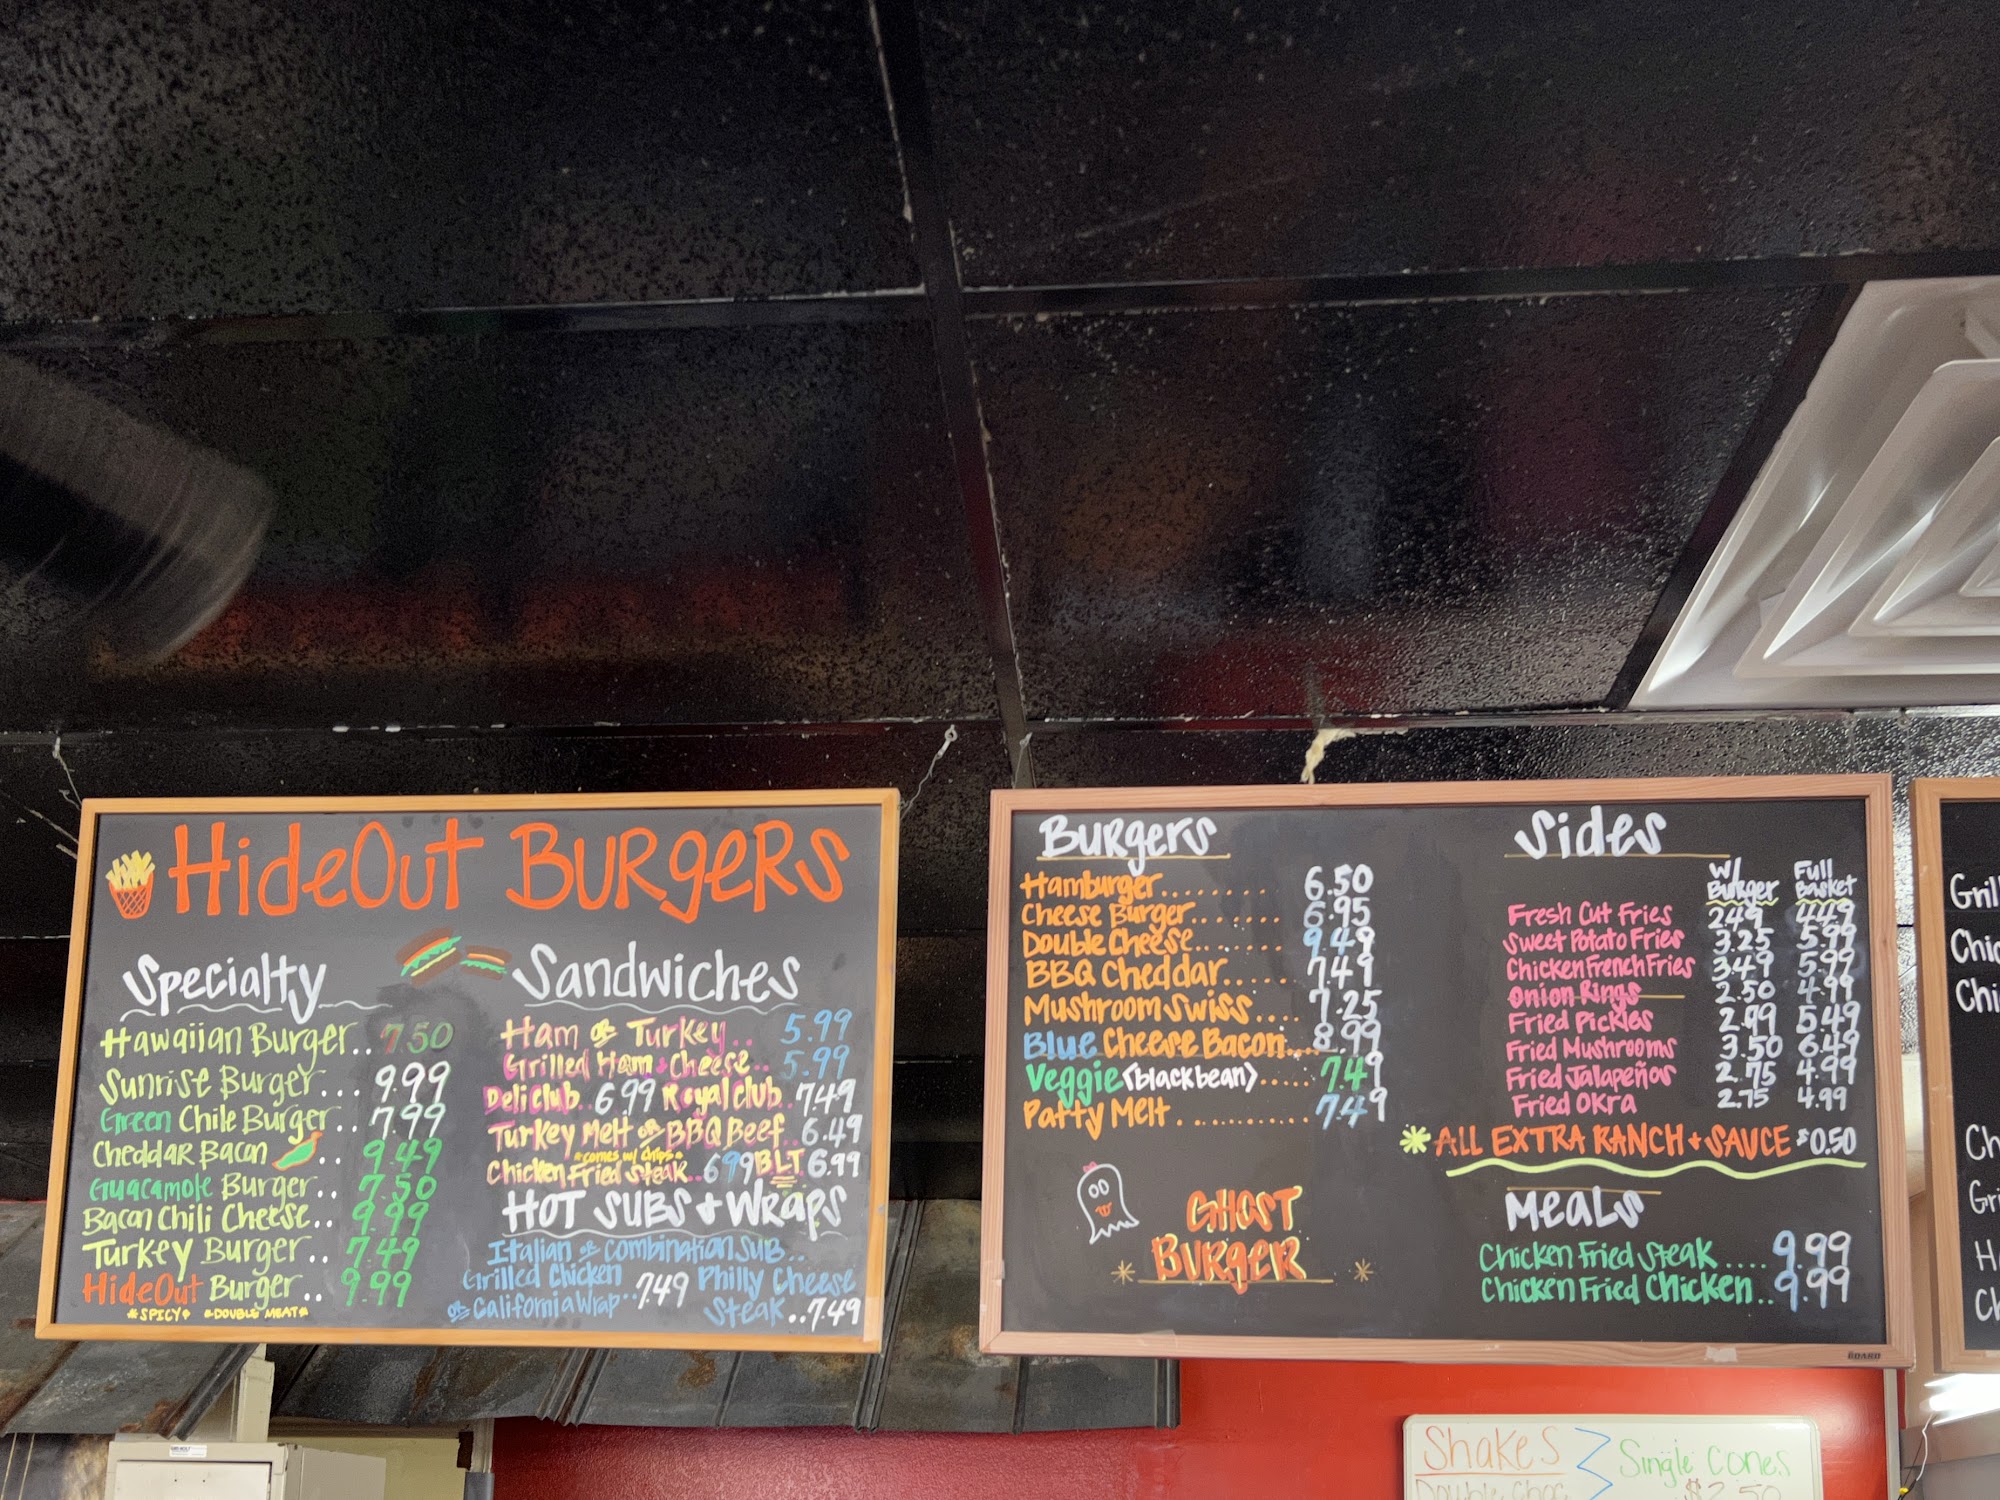 HideOut Burgers
Specialty
Hawaiian Burger.. 7.50
Sunrise Burger... 9.99
Green Chile Burger.. 7.99
Cheddar Bacon .. 9.49
Guacamole Burger.. 7.50
Bacon Chili Cheese.. 9.99
Turkey Burger.. 7.49
HideOut Burger.. 9.99
*SPICY* *DOUBLE MEAT*
Sandwiches
Ham or Turkey.. 5.99
Grilled Ham + Cheese.. 5.99
Deli club.. 6.99 Royal club.. 7.49
Turkey Melt or BBQ Beef.. 6.49
*comes w/ chips*
Chicken Fried Steak.. 6.99 BLT 6.99
HOT SUBS + WRAPS
Italian or Combination Sub..
Grilled Chicken
or California Wrap.. 7.49 Philly Cheese
Steak.. 7.49
Burgers
Hamburger......... 6.50
Cheese Burger....... 6.95
Double Cheese....... 9.49
BBQ Cheddar..... 7.49
Mushroom Swiss.... 7.25
Blue Cheese Bacon.... 8.99
Veggie (black bean)..... 7.49
Patty Melt ........... 7.49
GHOST
* BURGER *
Sides
W/ Burger Full Basket
Fresh Cut Fries 2.49 4.49
Sweet Potato Fries 3.25 5.99
Chicken French Fries 3.49 5.99
Onion Rings 2.50 4.99
Fried Pickles 2.99 5.49
Fried Mushrooms 3.50 6.49
Fried Jalapeños 2.75 4.99
Fried Okra 2.75 4.99
* ALL EXTRA RANCH + SAUCE $0.50
Meals
Chicken Fried Steak ..... 9.99
Chicken Fried Chicken.. 9.99
BOARD
Shakes
Single Cones
$2.50